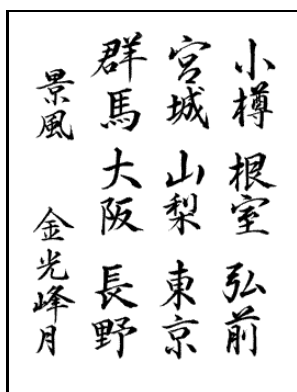 小樽 根室 弘前
宮城 山梨 東京
群馬 大阪 長野
景風 金光峰月